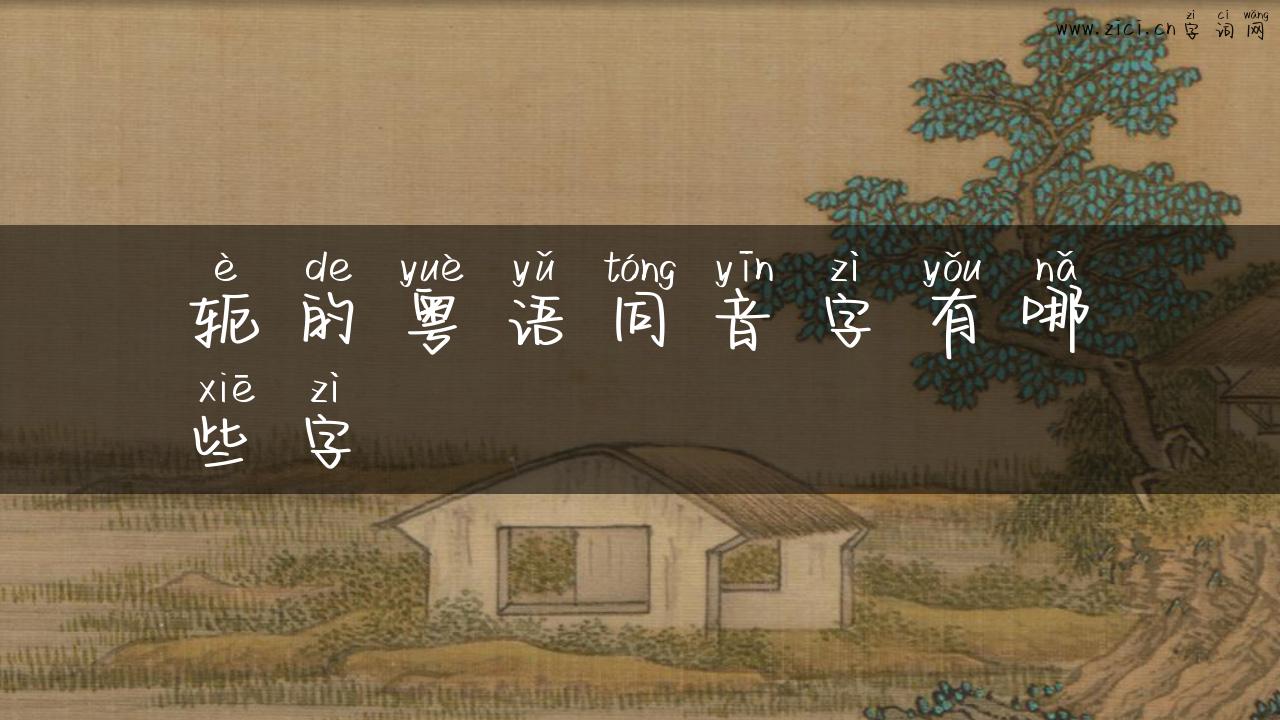 zì cí wǎng
www.zici.cn 字词网
è de yuè yǔ tóng yīn zì yǒu nǎ
轭的粤语同音字有哪
xiē zì
些字